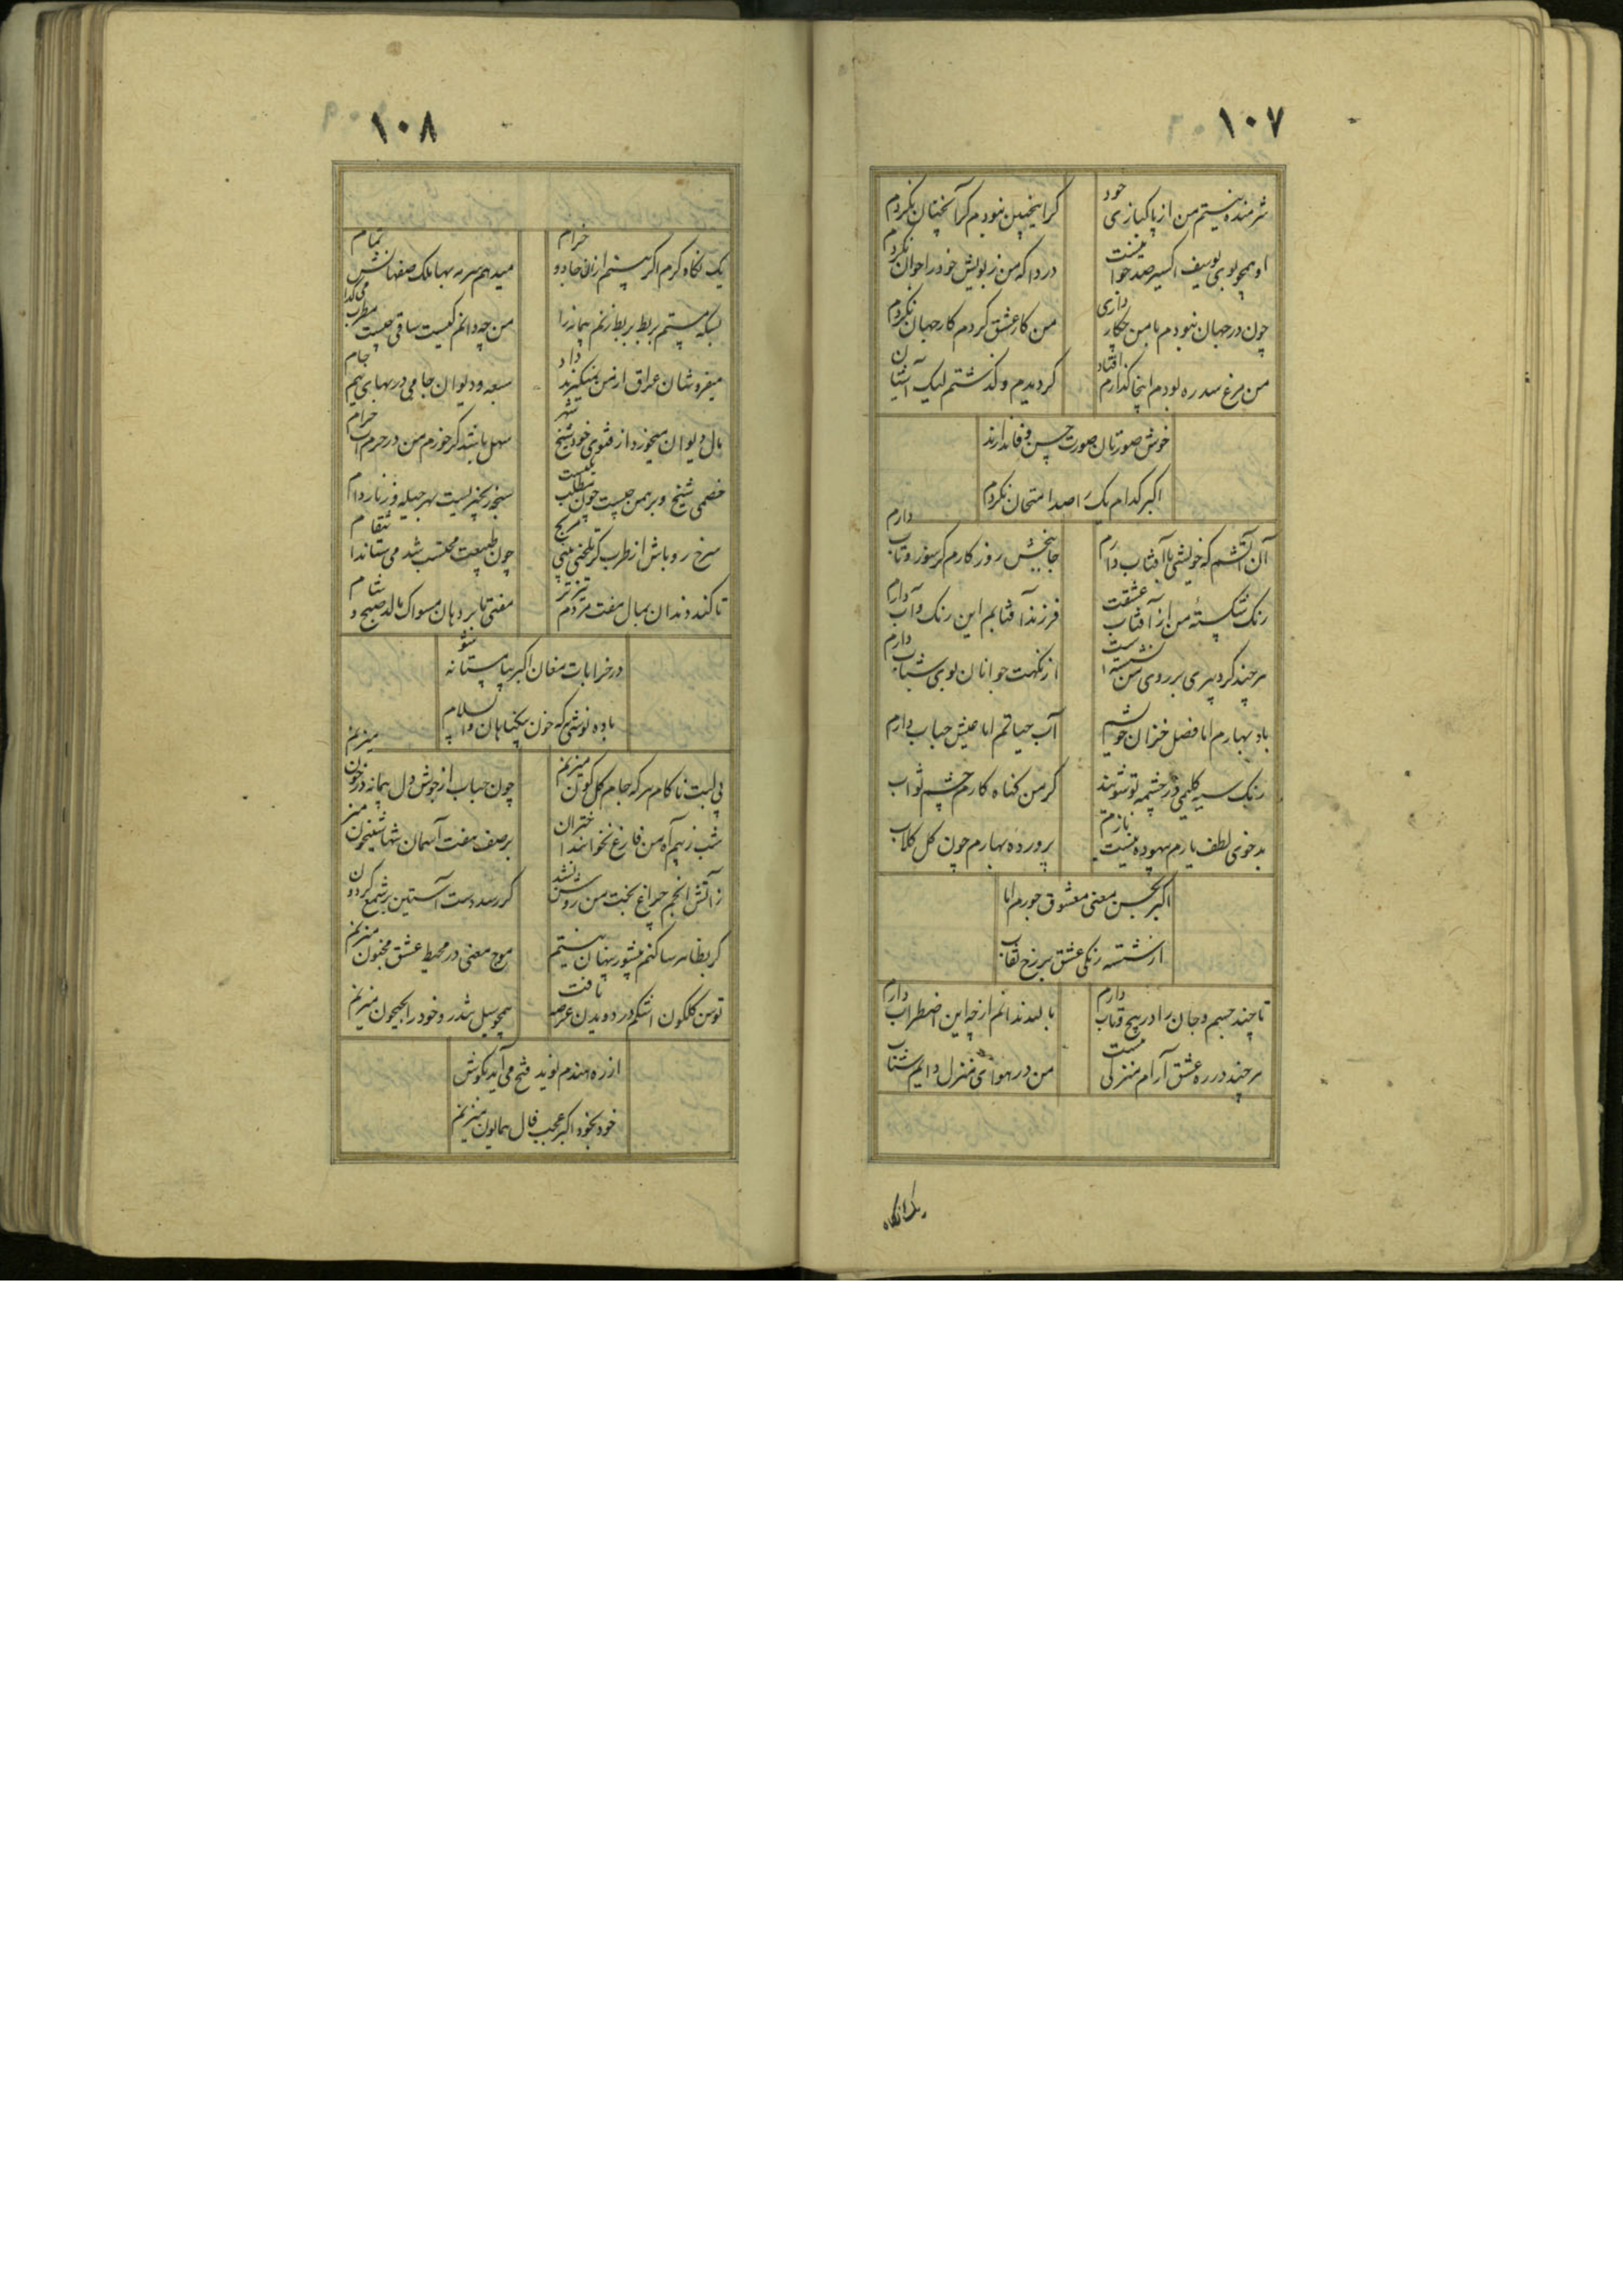 ١٠٧
شرمنده نیستم من از پاکبازی خود
کر اینچنین نبودم کر آنچنان نکردم
او همچو بوی یوسف اکسیر صد
دردا که من زبویش خود را جوان نکردم
چون در جهان نبودم با من چکار داری
من کار عشق کردم کار جهان نکردم
من مرغ سدره بودم اینجا کذارم افتاد
کردیدم و کذشتم لیک آشیان
خوش صورتان صورت حسن وفا ندارند
اکبر کدام یک را صد امتحان نکردم
آن آتشم که خویشی با آفتاب دارم
جانبخش روزکارم کر سوز و تاب دارم
رنک شکسته من از آفتاب عشقت
فرزند آفتابم این رنک و آب دارم
هر چند کرد پیری بر روی من نشسته است
از نکهت جوانان بوی شباب دارم
باد بهارم اما فصل خزان خویشم
آب حیاتم اما عیش حباب دارم
رنک سیه کلیمی در چشمه تو شویند
کر من کناه کارم چشم ثواب
بد خوی لطف یارم بیهوده نیست نازم
پرورده بهارم چون کل کلاب
اکبر بحسن معنی معشوق جورم اما
از شسته رنکی عشق بر رخ نقاب
تا چند جسم و جان را در پیچ و تاب دارم
با لبد ندانم از چه این اضطراب دارم
هر چند در ره عشق آرام منزلی نیست
من در هوای منزل دایم شتاب
یک نکاه
١٠٨
یک نکاه کرم اکر بینم ازان جادو خرام
میدهم سرمه بها ملک صفهانش تمام
بسکه مستم بر بط بر بط زنم پیمانه را
من چه دانم کیست ساقی چیست مطرب می کدام
میفروشان عراق از من نمیکیرند داد
سبعه و دیوان جامی در بهای نیم جام
مال دیوان میخورد از فتوی خود شیخ شهر
سهل باشد کر خورم من در حرم آب حرام
خصمی شیخ و برهمن چیست چون مطلب یکیست
سرخ رو باش از طرب کر تلخیی بینی مریج
چون طبیعت محتسب شد می ستاند انتقام
تا کند دندان بمال مفت مردم تیزتر
مفتی ما بر دهان مسواک مالد صبح و شام
در خرابات مغان اکبر بیا مستانه شو
باده نوشی که خون بیکناهان والسلام
بی لبت ناکام هر که جام کل کون میزنم
چون حباب از جوش دل پیمانه در خون میزنم
شب ز بیم آه من فارغ نخوابند اختران
بر صف هفت آسمان شبها شبیخون میزنم
ز آتش انجم چراغ بخت من روشن نشد
کر رسد دست آستین بر شمع کردون
کر بظاهر ساکنم بیشور پنهان نیستم
موج معنی در محیط عشق مجنون میزنم
توسن کلکون اشکم در دویدن عرصه یافت
همچو سیل تندرو خود را بجیحون میزنم
از ره هندم نوید فتح می آید بکوش
خود بخود اکبر عجب فال همایون میزنم